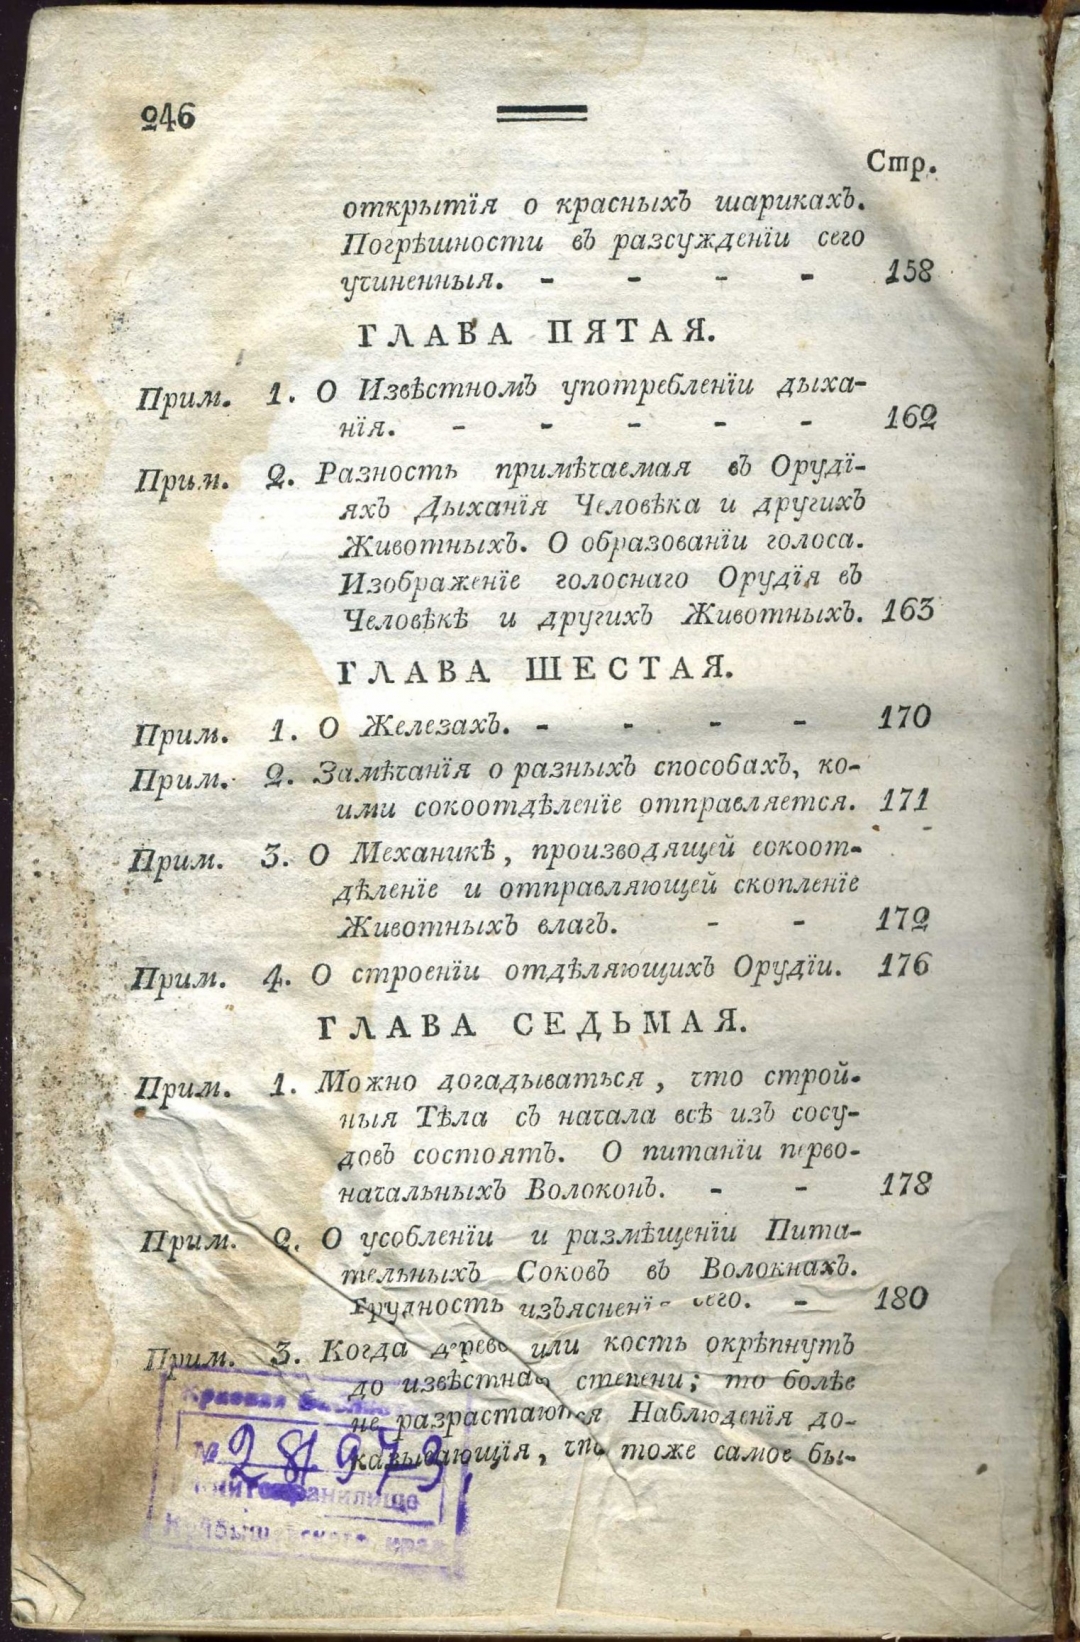 246
Стр.
открытія о красныхъ шарикахъ.
Погрѣшности въ разсужденіи сего
учиненныя. - - - - 158
ГЛАВА ПЯТАЯ.
Прим. 1. О Извѣстномъ употребленіи дыха-
нія. - - - - - 162
Прим. 2. Разность примѣчаемая въ Орудї-
яхъ Дыханїя Человѣка и другихъ
Животныхъ. О образованїи голоса.
Изображенїе голоснаго Орудїя въ
Человѣкѣ и другихъ Животныхъ. 163
ГЛАВА ШЕСТАЯ.
Прим. 1. О Железахъ. - - - - 170
Прим. 2. Замѣчанїя о разныхъ способахъ, ко-
ими сокоотдѣленїе отправляется. 171
Прим. 3. О Механикѣ, производящей сокоот-
дѣленїе и отправляющей скопленїе
Животныхъ влагъ. - - 172
Прим. 4. О строенїи отдѣляющихъ Орудїи. 176
ГЛАВА СЕДЬМАЯ.
Прим. 1. Можно догадываться, что строй-
ныя Тѣла съ начала всѣ изъ сосу-
довъ состоятъ. О питанїи перво-
начальныхъ Волоконъ. - - 178
Прим. 2. О усобленїи и размѣщенїи Пита-
тельныхъ Соковъ въ Волокнахъ.
Трудность изъясненї сего. - 180
Прим. 3. Когда дерево или кость окрѣпнутъ
до извѣстная степени; то болѣе
не разрастаются Наблюденїя до-
казывающїя, что тоже самое бы-
Краевая
№ 281973
Книгохранилище
Куйбышевского края